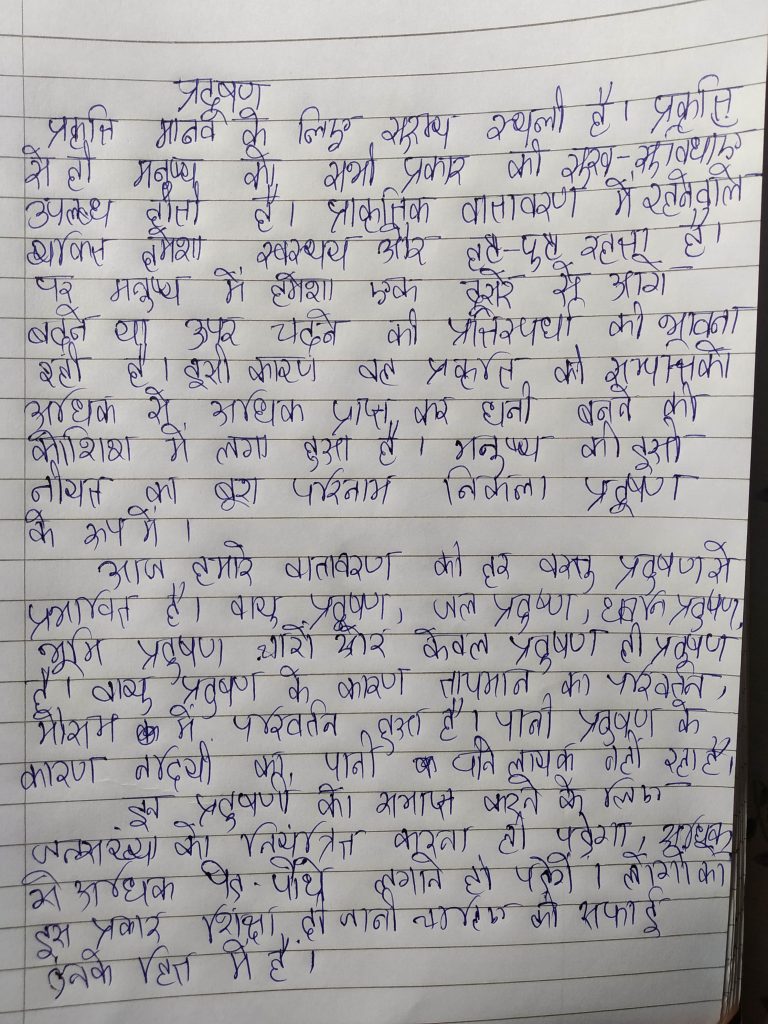 प्रदूषण
प्रकृति मानव के लिए सुरम्य स्थली है। प्रकृति
से ही मनुष्य को सभी प्रकार की सुख-सुविधाएँ
उपलब्ध होती है। प्राकृतिक वातावरण में रहनेवाले
व्यक्ति हमेशा स्वस्थय और हृष्ट-पुष्ट रहता है।
पर मनुष्य में हमेशा एक दूसरे से आगे
बढ़ने या उपर चढ़ने की प्रतिस्पर्धा की भावना
रही है। इसी कारण वह प्रकृति की सम्पत्ति को
अधिक से अधिक प्राप्त कर धनी बनने की
कोशिश में लगा हुआ है। मनुष्य की इसी
नीयत का बुरा परिनाम निकला प्रदूषण
के रूप में।
आज हमारे वातावरण की हर वस्तु प्रदुषण से
प्रभावित है। वायु प्रदूषण, जल प्रदुष्ण, ध्वनि प्रदुषण,
भूमि प्रदुषण चारों और केवल प्रदुषण ही प्रदूषण
है। वायु प्रदुषण के कारण तापमान का परिवर्तन,
मौसम में परिवर्तन हुआ है। पानी प्रदूषण के
कारण नदियों का पानी पीने लायक नहीं रहा है।
इन प्रदुषणों को समाप्त करने के लिए
जनसंख्या को नियंत्रित करना ही पड़ेगा, अधिक
से अधिक पेड़-पौधे लगाने ही पड़ेगें। लोगों को
इस प्रकार शिक्षा दी जानी चाहिए की सफाई
उनके हित में है।